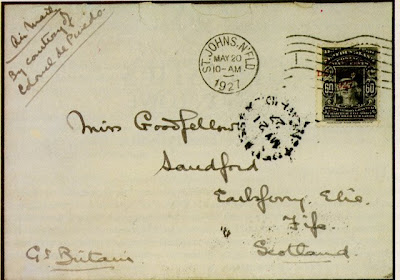 Air Mail
By courtesy of
Colonel de Pinedo.
ST. JOHN'S, N'F'L'D.
MAY 20
10-AM
1927
60 60
MAY 21
27
Miss Goodfellow
Sandford
Earlsferry, Elie.
Fife
Scotland
Gt Britain